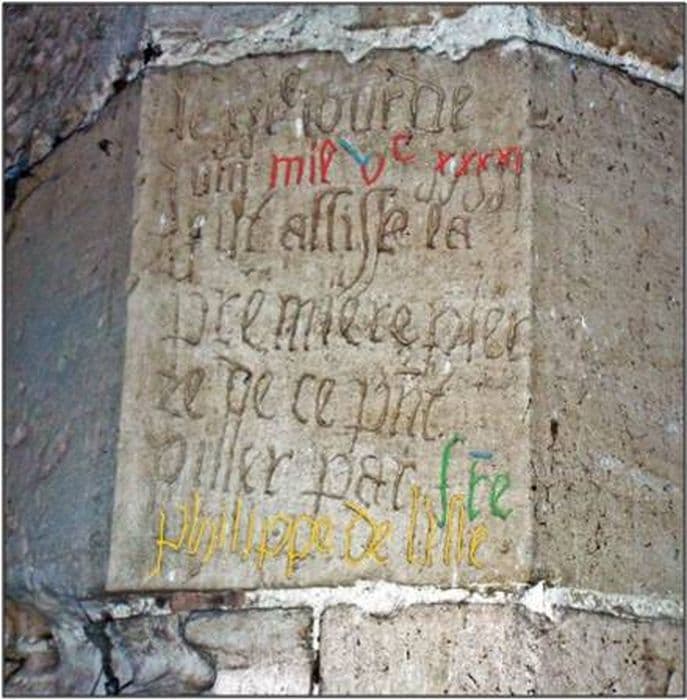 le xxe jour de
juin mil vc xxxxi
fut assise la
premiere pier
re de ce pnt
piller par fre
philippe de lisle